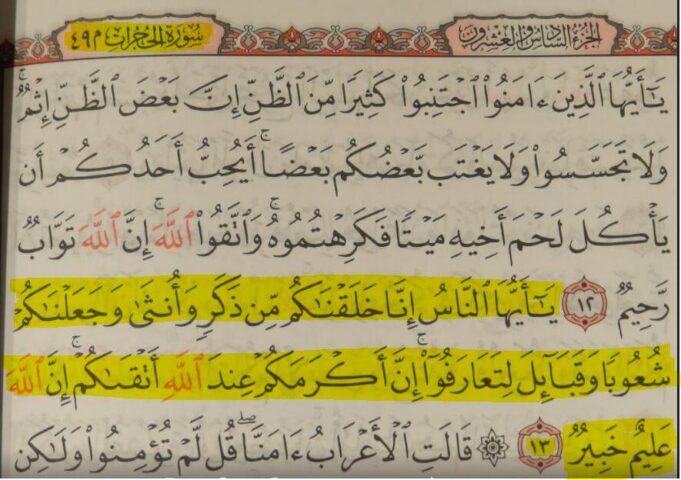 الجزء السادس والعشرون سورة الحجرات ٤٩
يَٰٓأَيُّهَا ٱلَّذِينَ ءَامَنُوا۟ ٱجْتَنِبُوا۟ كَثِيرًا مِّنَ ٱلظَّنِّ إِنَّ بَعْضَ ٱلظَّنِّ إِثْمٌ ۖ
وَلَا تَجَسَّسُوا۟ وَلَا يَغْتَب بَّعْضُكُم بَعْضًا ۚ أَيُحِبُّ أَحَدُكُمْ أَن
يَأْكُلَ لَحْمَ أَخِيهِ مَيْتًا فَكَرِهْتُمُوهُ ۚ وَٱتَّقُوا۟ ٱللَّهَ ۚ إِنَّ ٱللَّهَ تَوَّابٌ
رَّحِيمٌ ١٢ يَٰٓأَيُّهَا ٱلنَّاسُ إِنَّا خَلَقْنَٰكُم مِّن ذَكَرٍ وَأُنثَىٰ وَجَعَلْنَٰكُمْ
شُعُوبًا وَقَبَآئِلَ لِتَعَارَفُوٓا۟ ۚ إِنَّ أَكْرَمَكُمْ عِندَ ٱللَّهِ أَتْقَىٰكُمْ ۚ إِنَّ ٱللَّهَ
عَلِيمٌ خَبِيرٌ ١٣ ۞ قَالَتِ ٱلْأَعْرَابُ ءَامَنَّا ۖ قُل لَّمْ تُؤْمِنُوا۟ وَلَٰكِن